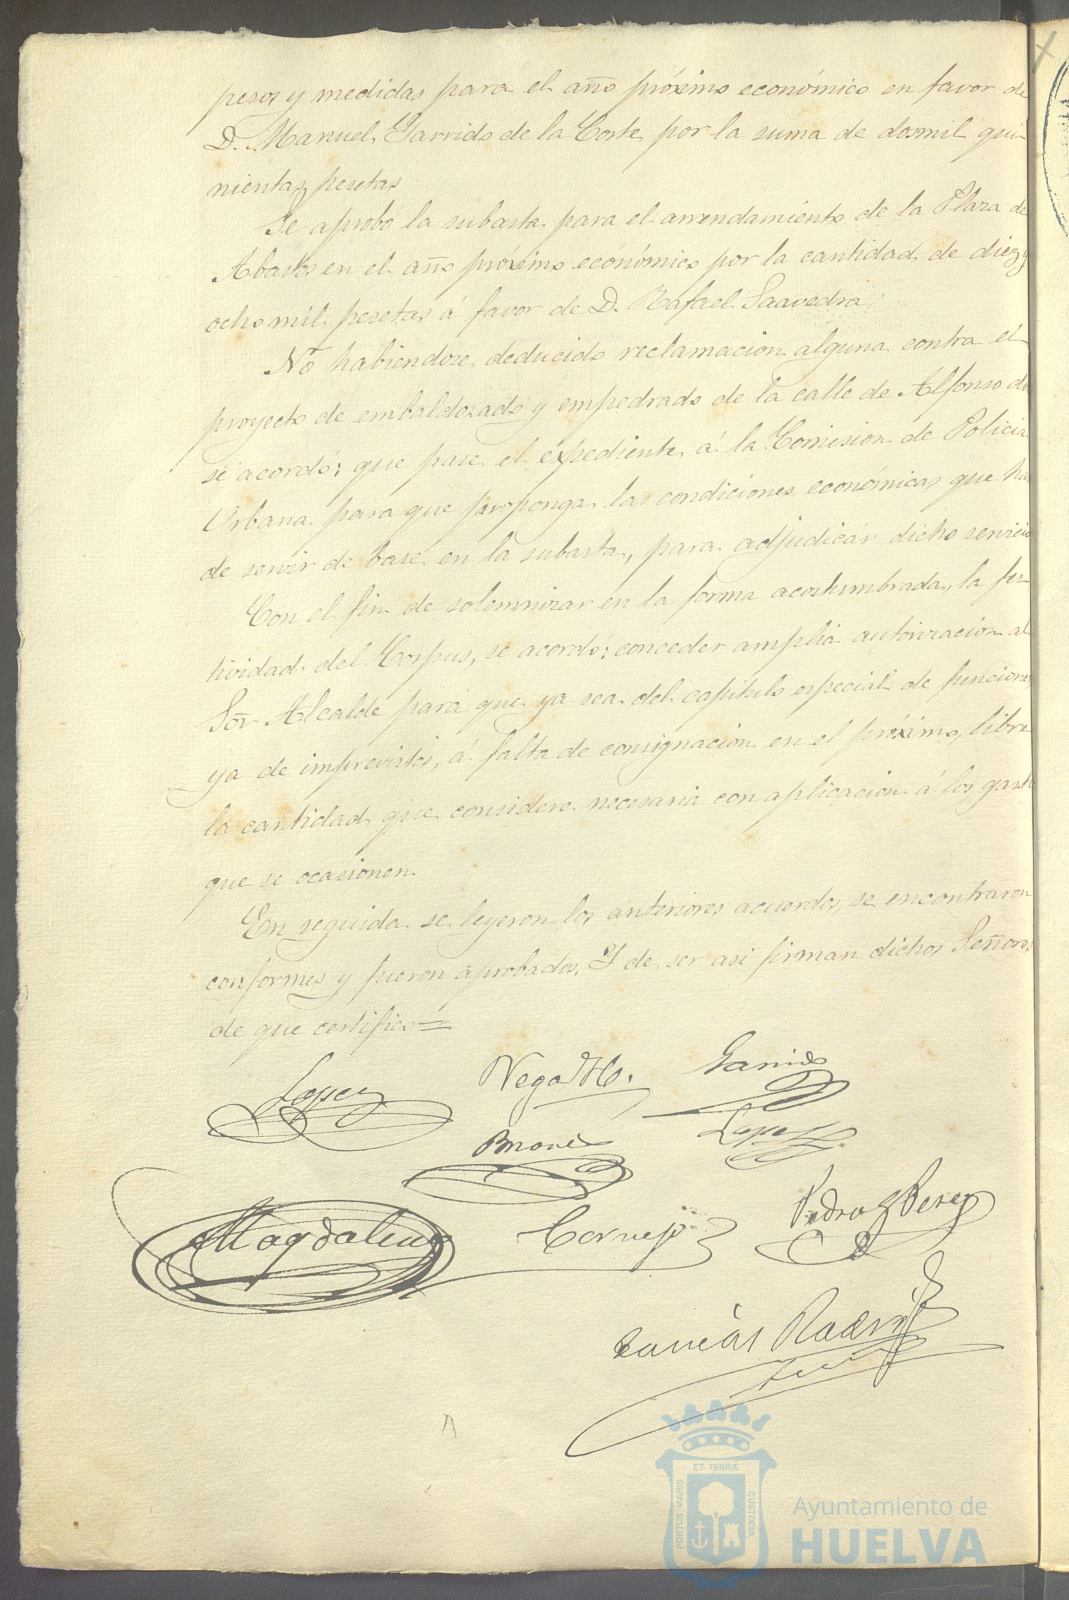 pesos y medidas para el año próximo económico en favor de
D. Manuel Garrido de la Corte por la suma de dosmil qui
nientas pesetas
Se aprobó la subasta para el arrendamiento de la Plaza de
Abastos en el año próximo económico por la cantidad de diez y
ocho mil pesetas á favor de D. Rafael Saavedra.
No habiendose deducido reclamacion alguna contra el
proyecto de embaldosado y empedrado de la calle de Alfonso
se acordó: que pase el expediente á la Comision de Policia
Urbana para que proponga las condiciones económicas que ha
de servir de base en la subasta, para adjudicar dicho servicio
Con el fin de solemnizar en la forma acostumbrada, la fes
tividad del Corpus, se acordó: conceder amplia autorizacion al
Sor Alcalde para que ya sea del capítulo especial de funciones
ya de imprevistos, á falta de consignacion en el próximo, libre
la cantidad que considere necesaria con aplicacion á los gast
que se ocasionen.
En seguida se leyeron los anteriores acuerdos, se encontraron
conformes y fueron aprobados. Y de ser asi firman dichos Señores
de que certifico=
Lopez Vega Garrido
Lopez
Magdalena Cornejo Pedro Perez
ET TERRA
PORTUS MARIS
CUSTODIA
Ayuntamiento de
HUELVA